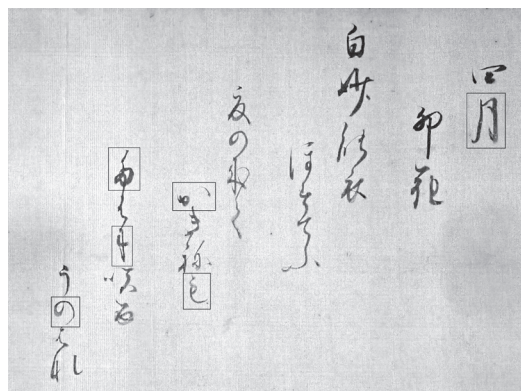 四月
卯花
白妙能衣
ほすてふ
夏のきて
かきねも
たわに咲る
うのはな